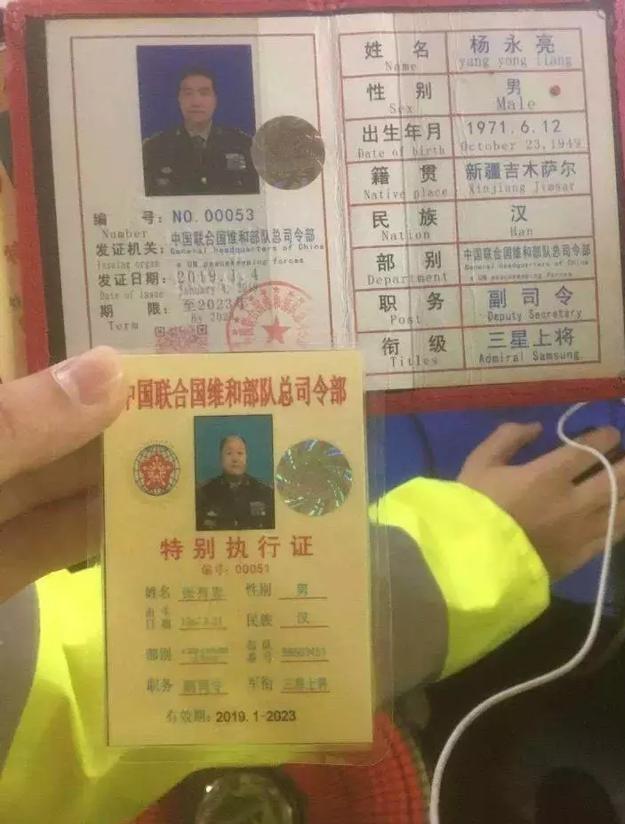 编 号: NO. 00053
Number
发证机关: 中国联合国维和部队总司令部
Issuing organ General headquarters of China
a UN peacekeeping forces
发证日期: 2019.1.4
Date of issue January 4, 2019
期 限: 至2023
Term By 202
姓 名 杨永亮
Name yang yong liang
性 别 男
Sex Male
出生年月 1971.6.12
Date of birth October 23,1949
籍 贯 新疆吉木萨尔
Native place Xinjiang Jimsar
民 族 汉
Nation Han
部 别 中国联合国维和部队总司令部
Department General headquarters of China
a UN peacekeeping forces
职 务 副司令
Post Deputy Secretary
衔 级 三星上将
Titles Admiral Samsung
中国联合国维和部队总司令部
特别执行证
编号: 00051
姓名 性别 男
出生
日期 民族 汉
部别
职务 副司令 军衔 三星上将
有效期: 2019.1-2023